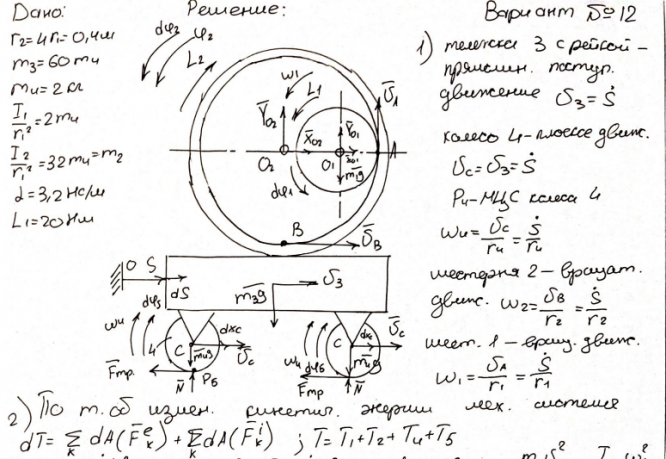 Дано:
r₂=4r₁=0,4м
m₃=60m₄
m₄=2кг
I₁/r₁²=2m₄
I₂/r₁²=32m₄=m₂
α=3,2Нс/м
L₁=20Нм
Решение:
dφ₂
φ₂
L₂
ω₁
L₁
Y̅₀₂
X̅₀₂
Y̅₀₁
O₂
O₁
m₁g
dφ₁
υ̅A
A
B
υ̅B
O
S
dS
m₃g
υ̅₃
ω₄
4
C
dxc
υ̅c
m₄g
F̅тр.
N̅
P₅
ω₄
C
dxc
υ̅c
m₄g
F̅тр
N̅
Вариант №12
1) тележка 3 с рейкой –
прямолин. поступ.
движение υ₃=Ṡ
колесо 4-плоское движ.
υc=υ₃=Ṡ
P₄-МЦС колеса 4
ω₄=υ̅c/r₄=Ṡ/r₄
шестерня 2 – вращат.
движ. ω₂=υB/r₂=Ṡ/r₂
шест. 1 – вращ. движ.
ω₁=υA/r₁=Ṡ/r₁
2) По т. об измен. кинетич. энергии мех. системы
dT=Σ dA(F̅ₖᵉ)+Σ dA(F̅ₖⁱ) ; T=T₁+T₂+T₄+T₅